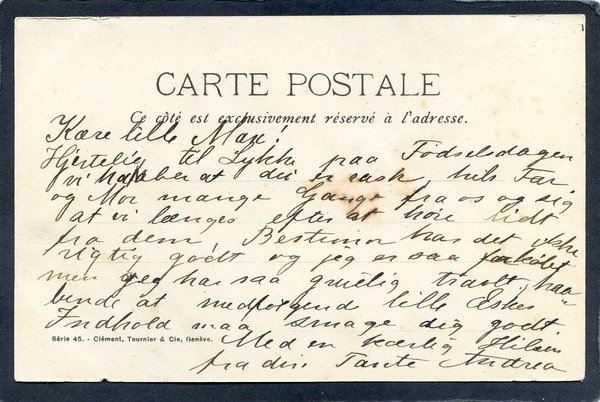 CARTE POSTALE
Ce côté est exclusivement réservé à l'adresse.
Kære lille Maxe!
Hjertelig til Lykke paa Fødselsdagen
vi haaber at du er rask, hils Far
og Mor mange Gange fra os og sig
at vi længes efter at høre lidt
fra dem Bestemor har det ikke
rigtig godt og jeg er saa forkølet
men jeg har saa gruelig travlt, haa-
bende at medfølgende lille Æskes
Indhold maa smage dig godt.
Série 45. - Clément, Tournier & Cie, Genève.
Med en kærlig Hilsen
fra din Tante Andrea